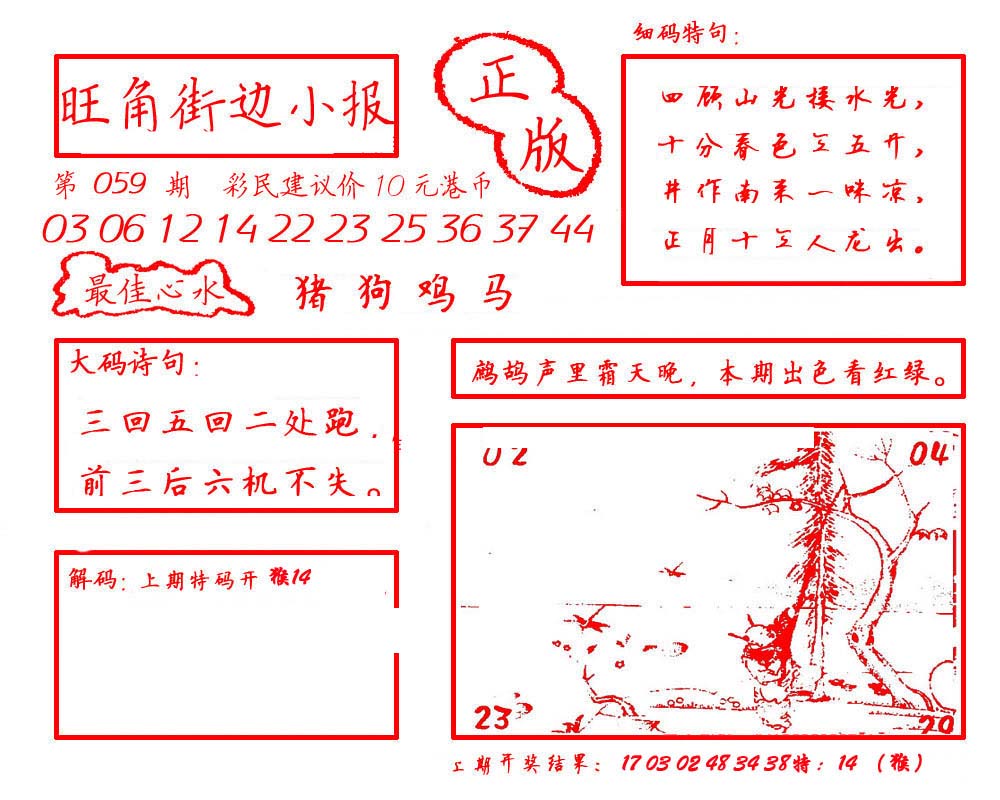 细码特句：
旺角街边小报
正版
四顾山光接水光，
十分春色至五开，
井作南来一味凉，
正月十至人龙出。
第 059 期 彩民建议价 10 元港币
03 06 12 14 22 23 25 36 37 44
最佳心水 猪 狗 鸡 马
大码诗句：
三回五回二处跑．
前三后六机不失。
鹧鸪声里霜天晚，本期出色看红绿。
02 04
解码：上期特码开 猴14
23 20
上期开奖结果：17 03 02 48 34 38特：14 （猴）